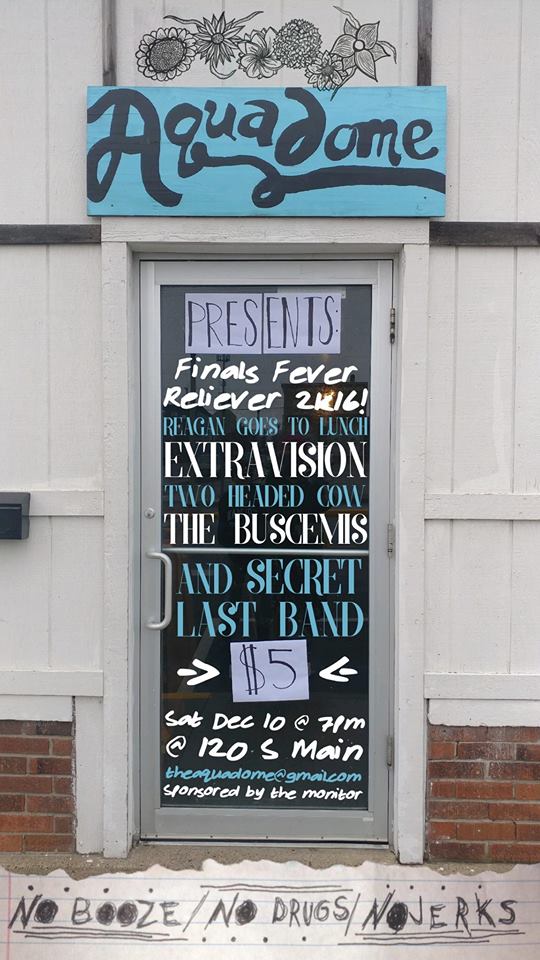 Aquadome
PRESENTS:
Finals Fever
Reliever 2k16!
REAGAN GOES TO LUNCH
EXTRAVISION
TWO HEADED COW
THE BUSCEMIS
AND SECRET
LAST BAND
$5
Sat Dec 10 @ 7pm
@ 120 S Main
theaquadome@gmail.com
Sponsored by the monitor
NO BOOZE/NO DRUGS/NO JERKS